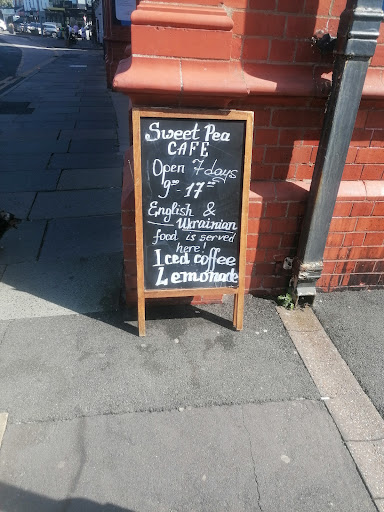 Sweet Pea
CAFE
Open 7 days
9⁰⁰ - 17⁰⁰
English &
Ukrainian
food is served
here!
Iced coffee
Lemonade